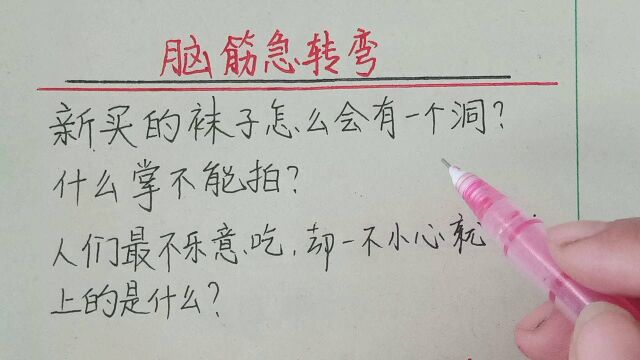 脑筋急转弯
新买的袜子怎么会有一个洞?
什么掌不能拍?
人们最不乐意吃,却一不小心就
上的是什么?